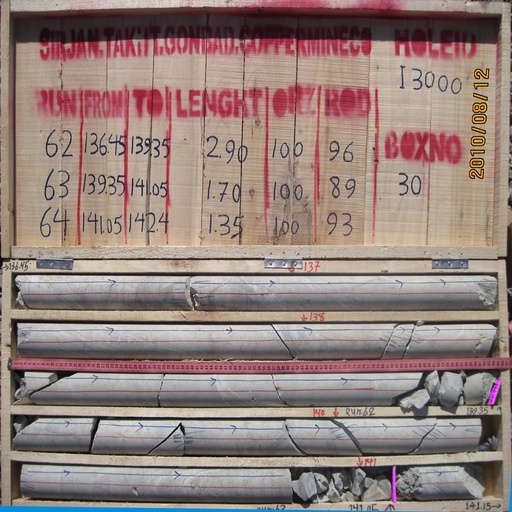 SIRJAN.TAKHT.GONBAD.COPPERMINECO HOLEID
I3000
RUN FROM TO LENGHT CRZ RQD
62 136.45 139.35 2.90 100 96 BOXNO
63 139.35 141.05 1.70 100 89 30
64 141.05 142.4 1.35 100 93
2010/08/12
136.45
137
138
139.35
140 Run62
141
141.05
141.15